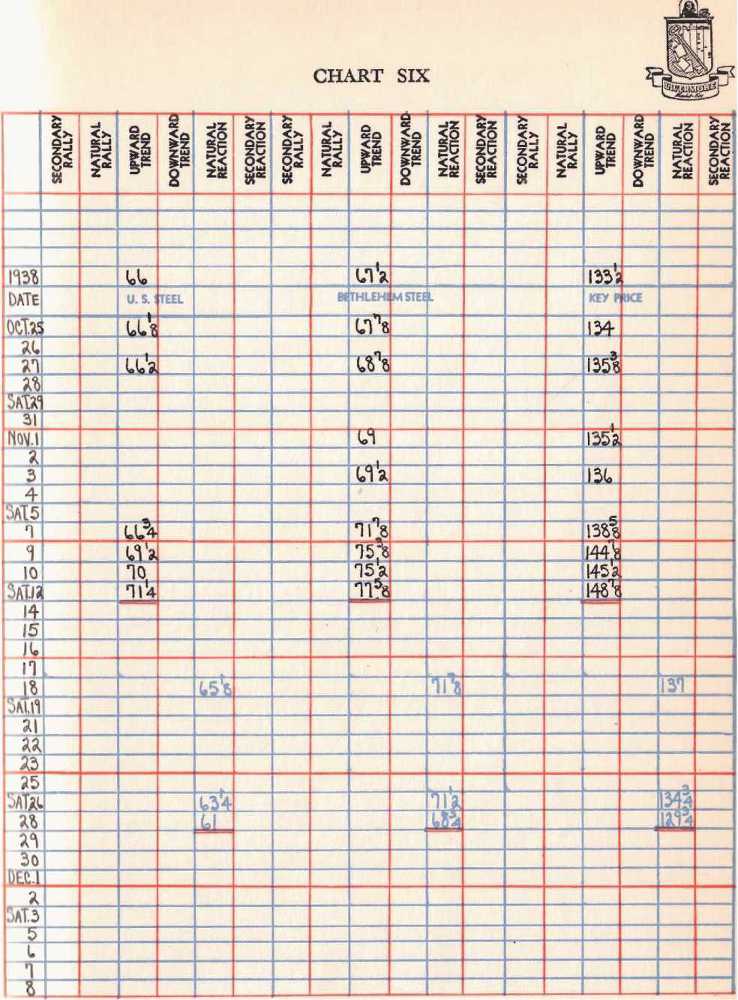 LIVERMORE
CHART SIX
SECONDARY RALLY NATURAL RALLY UPWARD TREND DOWNWARD TREND NATURAL REACTION SECONDARY REACTION SECONDARY RALLY NATURAL RALLY UPWARD TREND DOWNWARD TREND NATURAL REACTION SECONDARY REACTION SECONDARY RALLY NATURAL RALLY UPWARD TREND DOWNWARD TREND NATURAL REACTION SECONDARY REACTION
1938 66 67 1/2 133 1/2
DATE U. S. STEEL BETHLEHEM STEEL KEY PRICE
OCT.25 66 1/8 67 7/8 134
26
27 66 1/2 68 7/8 135 3/8
28
SAT.29
31
NOV.1 69 135 1/2
2
3 69 1/2 136
4
SAT.5
7 66 3/4 71 7/8 138 5/8
9 69 1/2 75 3/8 144 7/8
10 70 75 1/2 145 1/2
SAT.12 71 1/4 77 5/8 148 7/8
14
15
16
17
18 65 1/8 71 7/8 137
SAT.19
21
22
23
25
SAT.26 63 1/4 71 1/2 134 3/4
28 61 68 3/4 129 3/4
29
30
DEC.1
2
SAT.3
5
6
7
8